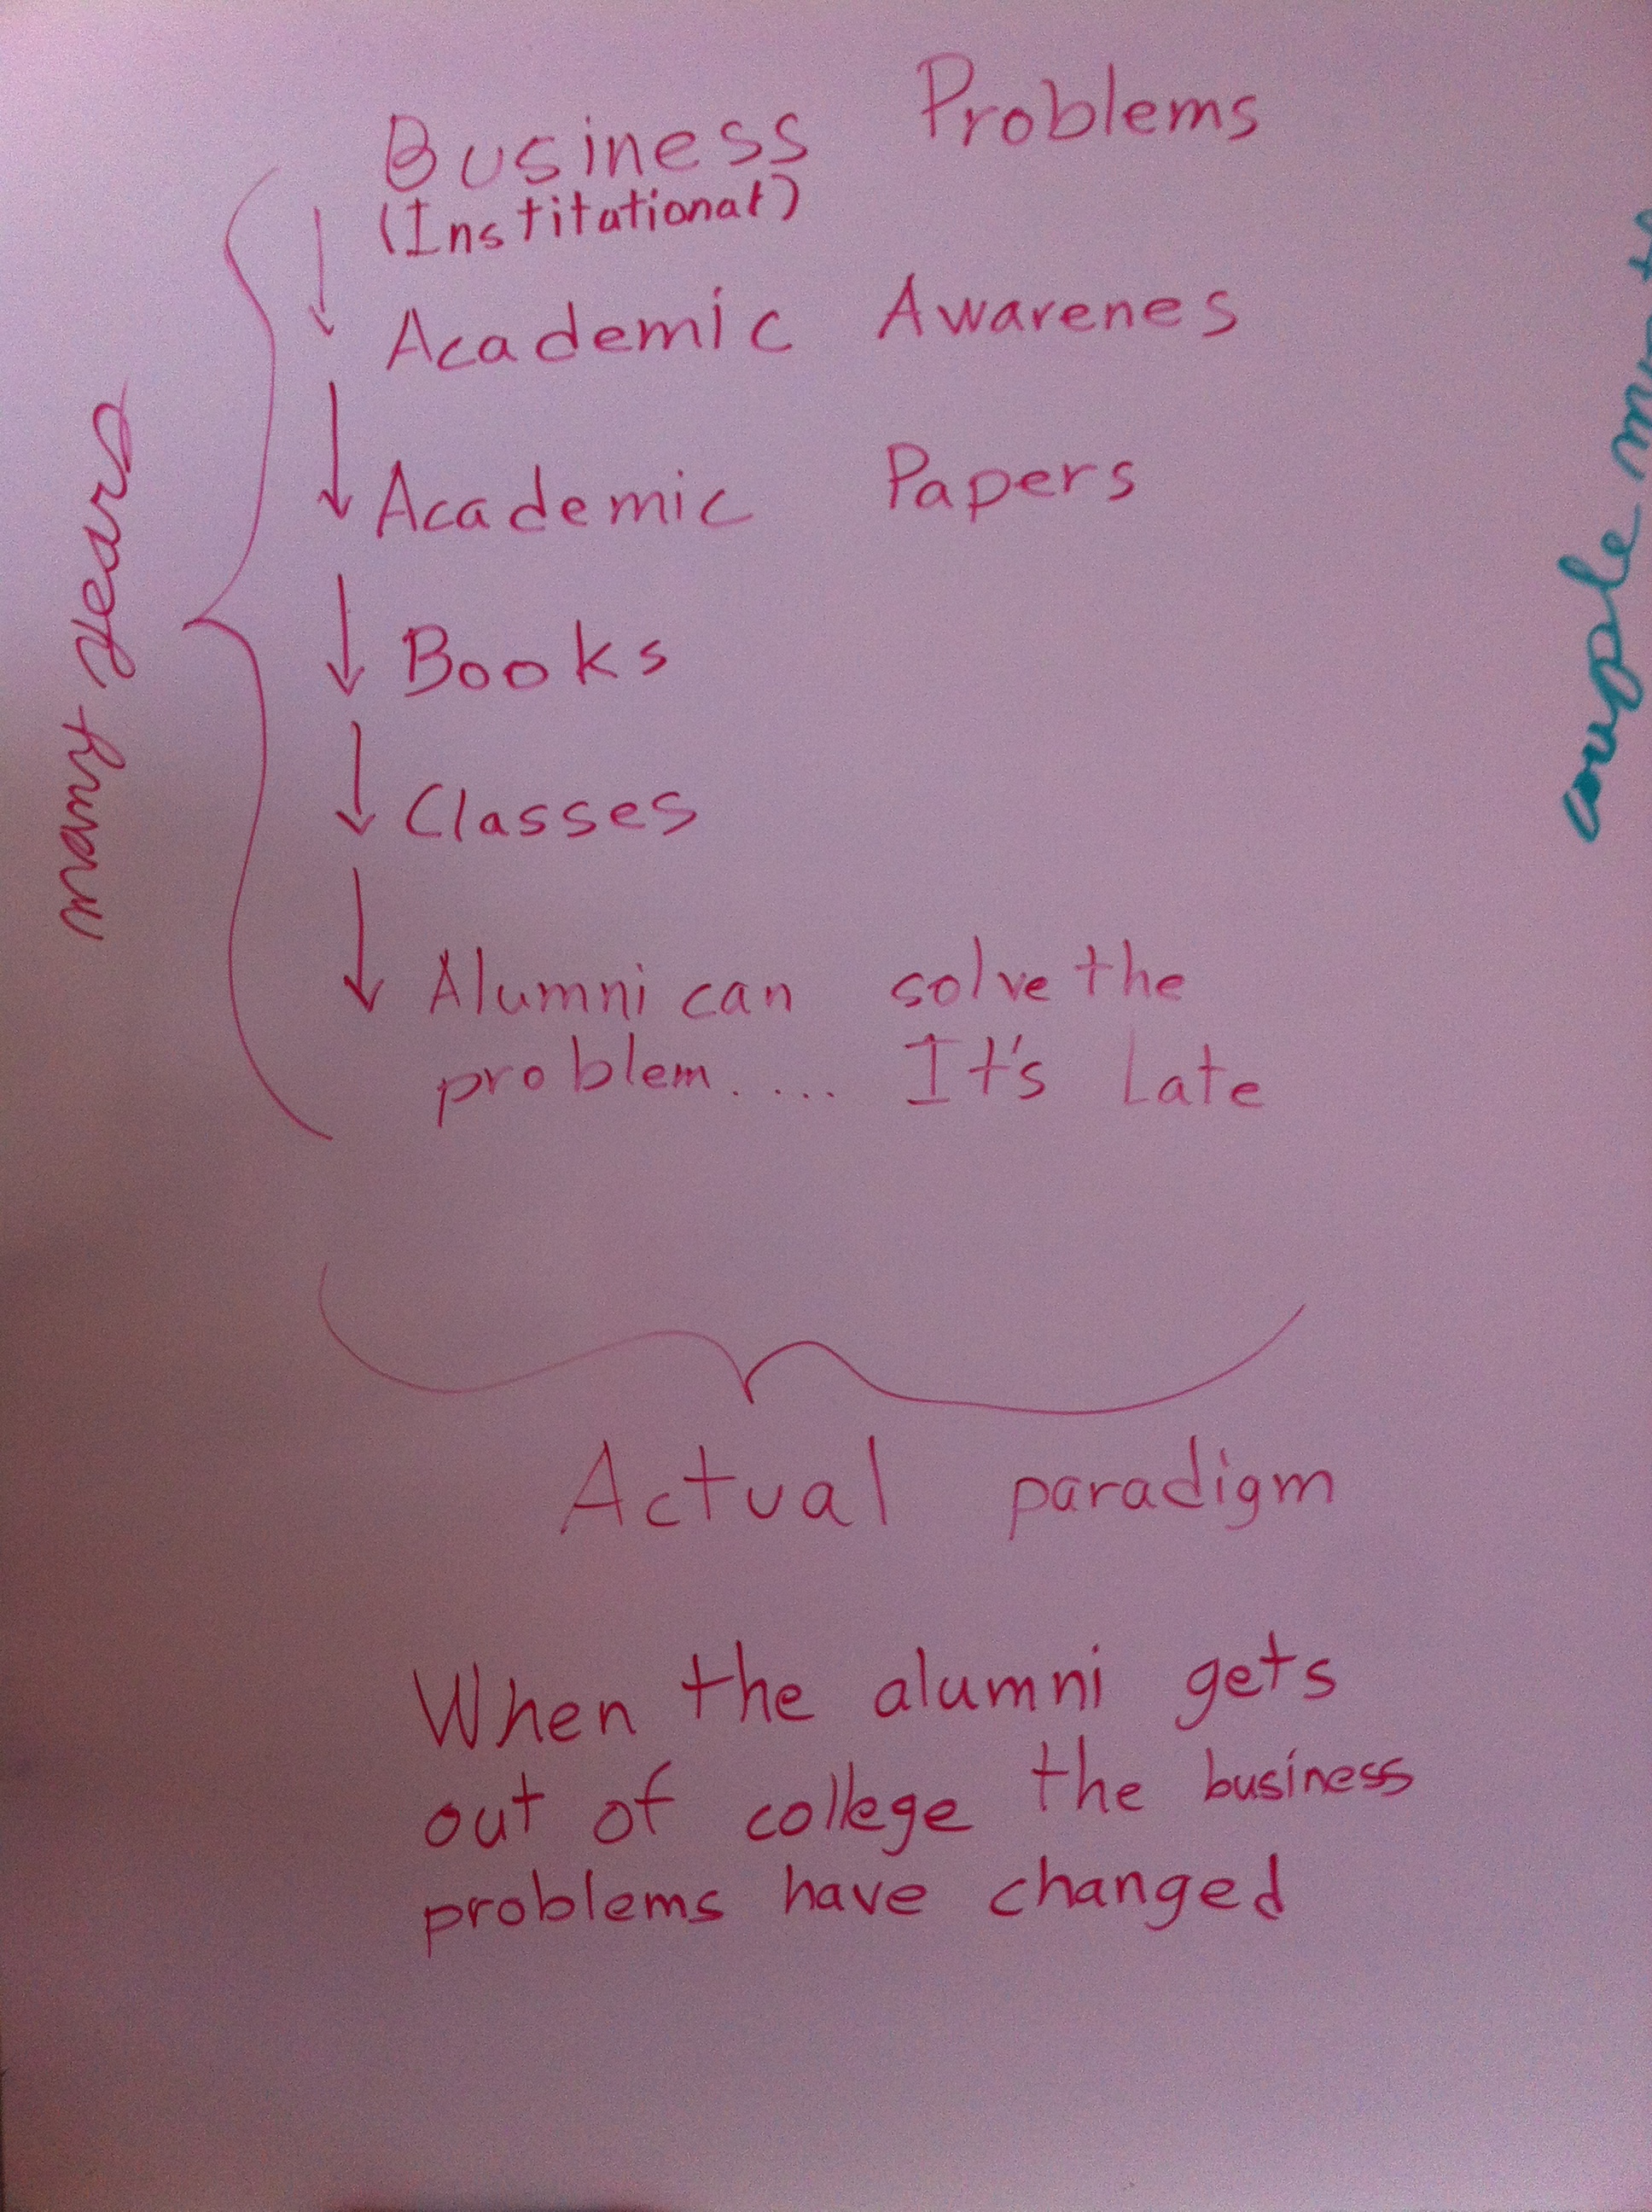 Business Problems
(Institutional)
Academic Awarenes
Academic Papers
Books
Classes
Alumni can solve the
problem.... It's Late
many years
Actual paradigm
When the alumni gets
out of college the business
problems have changed
couple